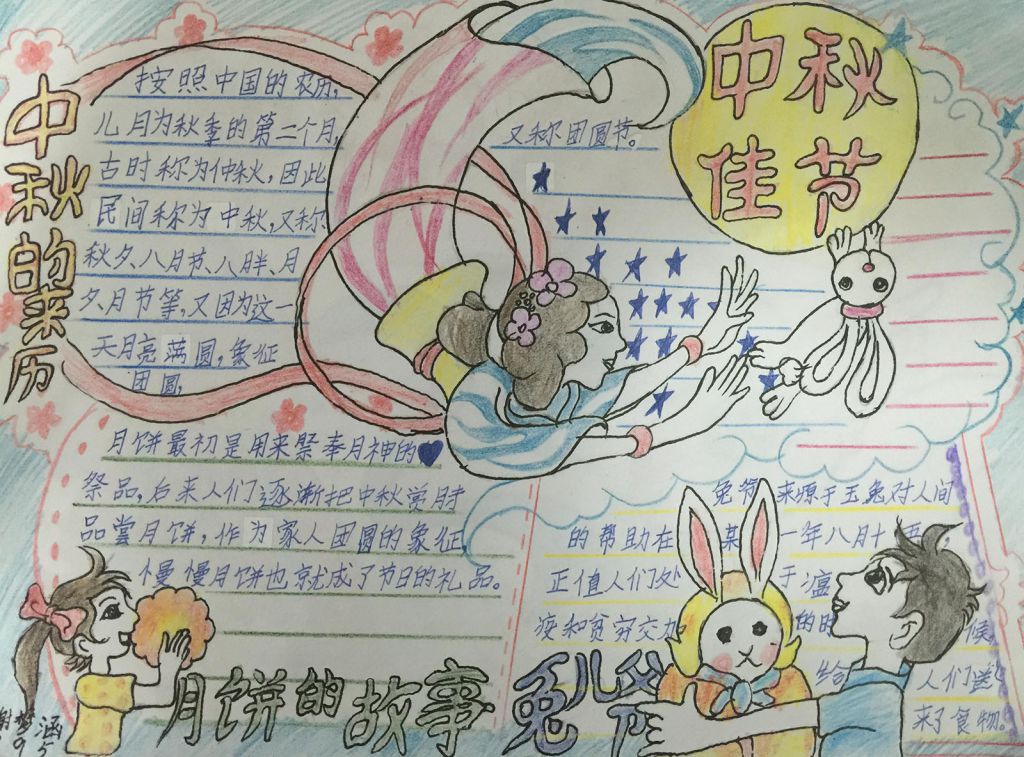 中秋佳节
中秋的来历
按照中国的农历,
八月为秋季的第二个月,
古时称为仲秋,因此
民间称为中秋,又称
秋夕、八月节、八月半、月
夕、月节等,又因为这一
天月亮满圆,象征
团圆,
又称团圆节。
月饼最初是用来祭奉月神的
祭品,后来人们逐渐把中秋赏月时
品尝月饼,作为家人团圆的象征
慢慢月饼也就成了节日的礼品。
月饼的故事
兔爷来源于玉兔对人间
的帮助在某一年八月十五
正值人们处于瘟
疫和贫穷交加的时候,
给人们送
来了食物。
兔儿爷
涵